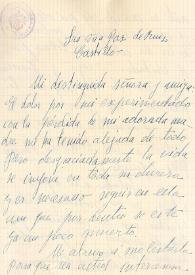 Sra Dña Paz de
Castillo
Mi distinguida señora y amiga:
El dolor por mi experimentado
con la pérdida de mi adorada ma
dre me ha tenido alejada de todo
pero desgraciadamente la vida
se impone en toda su dureza
y es necesario seguir en ella
aun que por dentro se esté
ya un poco muerto.
Me atrevo a molestarla
para que